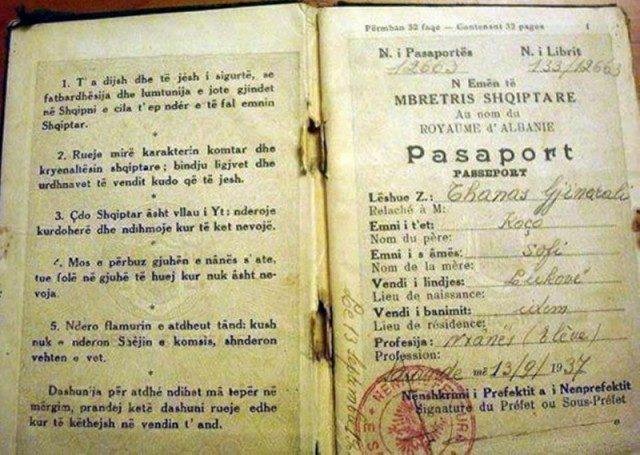 1. T'a dijsh dhe të jèsh i sigurtë, se
fatbardhësija dhe lumtunija e jote gjindet
në Shqipni e cila t'ep ndér e të fal emnin
Shqiptar.
2. Rueje mirë karakterin komtar dhe
kryenaltësin shqiptare; bindju ligjvet dhe
urdhnavet të vendit kudo që të jesh.
3. Çdo Shqiptar âsht vllau i Yt: nderoje
kurdoherë dhe ndihmoje kur të ket nevojë.
4. Mos e përbuz gjuhën e nânës s'ate,
tue folë në gjuhë të huej kur nuk âsht ne-
voja.
5. Ndero flamurin e atdheut tând: kush
nuk e nderon Shêjin e komsis, shnderon
vehten e vet.
Dashunija për atdhé ndihet mâ tepër në
mërgim, prandej ketë dashuni rueje edhe
kur të këthejsh në vendin t'and.
Përmban 32 faqe — Contenant 32 pages
1
N. i Pasaportës
N. i Librit
12663
133/12663
N Emën të
MBRETRIS SHQIPTARE
Au nom du
ROYAUME d'ALBANIE
Pasaport
PASSEPORT
Lëshue Z.: Thanas Gjinarali
Relaché à M:
Emni i t'et: Koço
Nom du père:
Emni i s âmës: Sofi
Nom de la mère:
Vendi i lindjes: Lukovë
Lieu de naissance:
Vendi i banimit: idem
Lieu de résidence:
Profesija: nxanës (Elève)
Profession:
Sarandë më 13/9/1937
Nënshkrimi i Prefektit a i Nenprefektit
Signature du Préfet ou Sous-Préfet